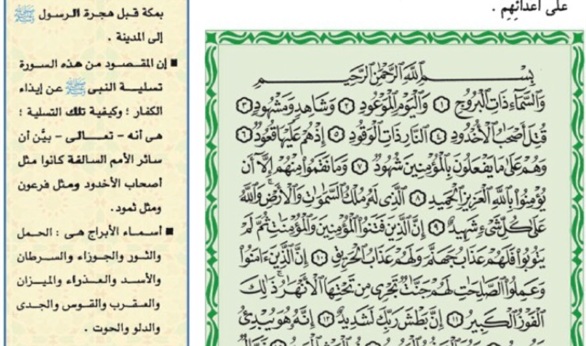 على أعدائهم .
بِسْمِ اللَّهِ الرَّحْمَٰنِ الرَّحِيمِ
وَالسَّمَاءِ ذَاتِ الْبُرُوجِ ١ وَالْيَوْمِ الْمَوْعُودِ ٢ وَشَاهِدٍ وَمَشْهُودٍ ٣
قُتِلَ أَصْحَابُ الْأُخْدُودِ ٤ النَّارِ ذَاتِ الْوَقُودِ ٥ إِذْ هُمْ عَلَيْهَا قُعُودٌ ٦
وَهُمْ عَلَىٰ مَا يَفْعَلُونَ بِالْمُؤْمِنِينَ شُهُودٌ ٧ وَمَا نَقَمُوا مِنْهُمْ إِلَّا أَن
يُؤْمِنُوا بِاللَّهِ الْعَزِيزِ الْحَمِيدِ ٨ الَّذِي لَهُ مُلْكُ السَّمَاوَاتِ وَالْأَرْضِ وَاللَّهُ
عَلَىٰ كُلِّ شَيْءٍ شَهِيدٌ ٩ إِنَّ الَّذِينَ فَتَنُوا الْمُؤْمِنِينَ وَالْمُؤْمِنَاتِ ثُمَّ لَمْ
يَتُوبُوا فَلَهُمْ عَذَابُ جَهَنَّمَ وَلَهُمْ عَذَابُ الْحَرِيقِ ١٠ إِنَّ الَّذِينَ آمَنُوا
وَعَمِلُوا الصَّالِحَاتِ لَهُمْ جَنَّاتٌ تَجْرِي مِن تَحْتِهَا الْأَنْهَارُ ذَٰلِكَ
الْفَوْزُ الْكَبِيرُ ١١ إِنَّ بَطْشَ رَبِّكَ لَشَدِيدٌ ١٢ إِنَّهُ هُوَ يُبْدِئُ
بمكة قبل هجرة الرسول ﷺ
إلى المدينة .
■ إن المقصود من هذه السورة
تسلية النبى ﷺ عن إيذاء
الكفار ؛ وكيفية تلك التسلية ؛
هى أنه - تعالى - بيَّن أن
سائر الأمم السالفة كانوا مثل
أصحاب الأخدود ومثل فرعون
ومثل ثمود.
■ أسماء الأبراج هى : الحمل
والثور والجوزاء والسرطان
والأسد والعذراء والميزان
والعقرب والقوس والجدى
والدلو والحوت .